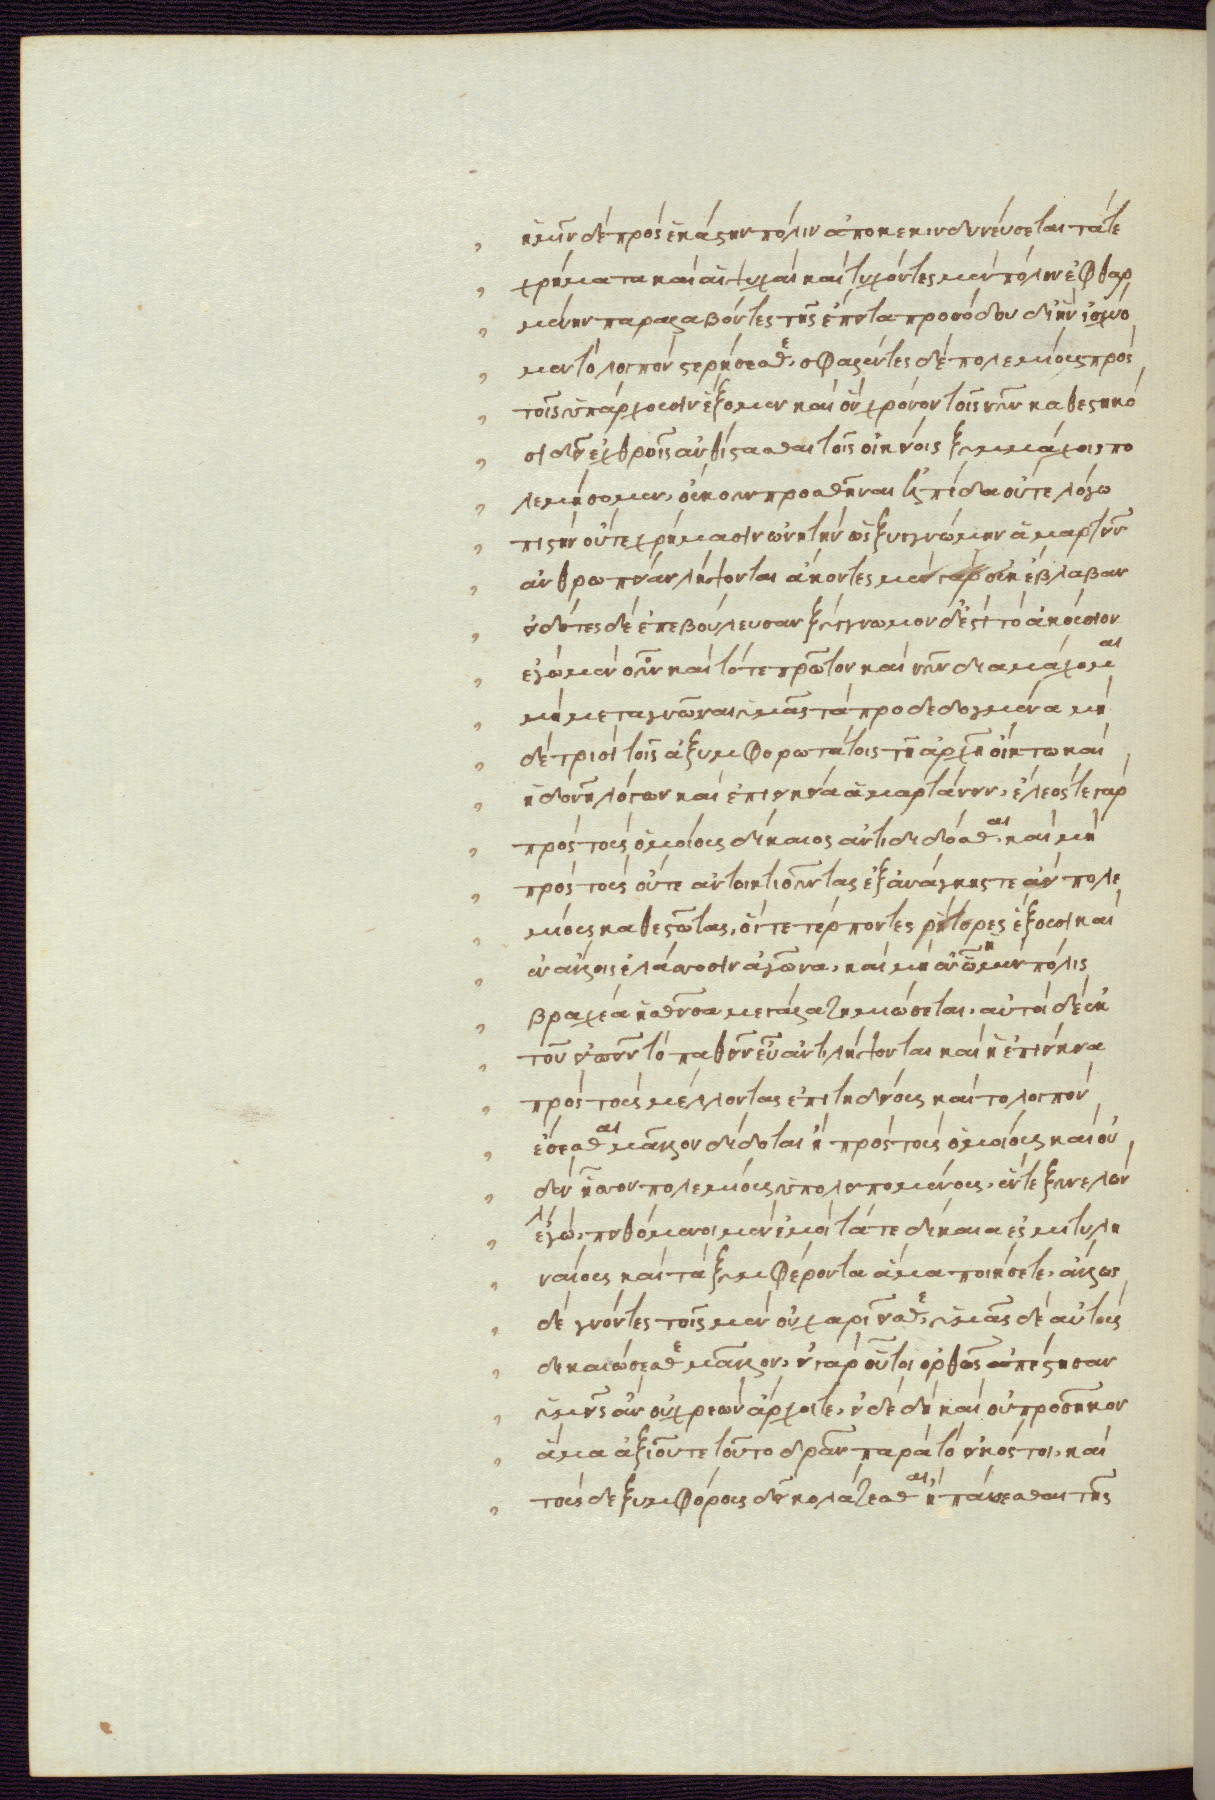 ἡμῖν δὲ πρὸς ἑκάστην πόλιν ἀποκεκινδυνεύσεται τά τε
χρήματα καὶ αἱ ψυχαὶ καὶ τυχόντες μὲν πόλιν ἐφθαρ
μένην παραλαβόντες τῆς ἔπειτα προσόδου δι' ἣν ἰσχύο
μεν τὸ λοιπὸν στερήσεσθε, σφαλέντες δὲ πολεμίους πρὸς
τοῖς ὑπάρχουσιν ἕξομεν καὶ ὃν χρόνον τοῖς νῦν καθεστηκό
σι δεῖ ἐχθροῖς ἀνθίστασθαι τοῖς οἰκείοις ξυμμάχοις πο
λεμήσομεν, οὔκουν προσθεῖναι ἐλπίδα οὔτε λόγω
πιστὴν οὔτε χρήμασιν ὠνητὴν ὡς ξυγγνώμην ἁμαρτεῖν
ἀνθρωπείαν λήψονται ἄκοντες μὲν γὰρ οὐκ ἔβλαβαν
εἰδότες δὲ ἐπεβούλευσαν ξύγγνωμον δέ ἐστι τὸ ἀκούσιον
ἐγὼ μὲν οὖν καὶ τότε πρῶτον καὶ νῦν διαμάχομαι
μὴ μεταγνῶναι ὑμᾶς τὰ προδεδογμένα μη
δὲ τρισὶ τοῖς ἀξυμφορωτάτοις τῆ ἀρχῆ οἴκτω καὶ
ἡδονῆ λόγων καὶ ἐπιεικεία ἁμαρτάνειν, ἔλεός τε γὰρ
πρὸς τοὺς ὁμοίους δίκαιος ἀντιδίδοσθαι, καὶ μὴ
πρὸς τοὺς οὔτε ἀντοικτιοῦντας ἐξ ἀνάγκης τε ἀεὶ πολε
μίους καθεστῶτας, οἵ τε τέρποντες ῥήτορες ἕξουσι καὶ
ἐν ἄλλοις ἐλάσσοσιν ἀγῶνα, καὶ μὴ ἐν ὧ ἡ μὲν πόλις
βραχέα ἡσθεῖσα μεγάλα ζημιώσεται, αὐτοὶ δὲ ἐκ
τοῦ εὖ εἰπεῖν τὸ παθεῖν εὖ ἀντιλήψονται καὶ ἡ ἐπιείκεια
πρὸς τοὺς μέλλοντας ἐπιτηδείους καὶ τὸ λοιπὸν
ἔσεσθαι μᾶλλον δίδοται ἢ πρὸς τοὺς ὁμοίους καὶ οὐ
δὲν ἧσσον πολεμίους ὑπολειπομένους, ἕν τε ξυνελὼν
λέγω, πειθόμενοι μὲν ἐμοὶ τά τε δίκαια ἐς μιτυλη
ναίους καὶ τὰ ξυμφέροντα ἅμα ποιήσετε, ἄλλως
δὲ γνόντες τοῖς μὲν οὐ χαριεῖσθε, ὑμᾶς δὲ αὐτοὺς
δικαιώσεσθε μᾶλλον, εἰ γὰρ οὗτοι ὀρθῶς ἀπέστησαν
ὑμεῖς ἂν οὐ χρεὼν ἄρχοιτε, εἰ δὲ δὴ καὶ οὐ προσῆκον
ἅμα ἀξιοῦτε τοῦτο δρᾶν παρὰ τὸ εἰκός τοι, καὶ
τούσδε ξυμφόρους δεῖ κολάζεσθαι, ἢ παύεσθαι τῆς